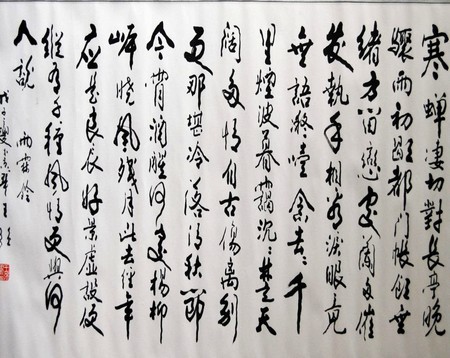 寒蟬凄切對長亭晚
驟雨初歇都門帳飲無
緒方留戀處蘭舟催
發執手相看淚眼竟
無語凝噎念去々千
里煙波暮靄沉々楚天
闊多情自古傷離別
更那堪冷落清秋節
今宵酒醒何處楊柳
岸曉風殘月此去經年
應是良辰好景虛設便
縱有千種風情更與何
人說 雨霖鈴
戊子夏